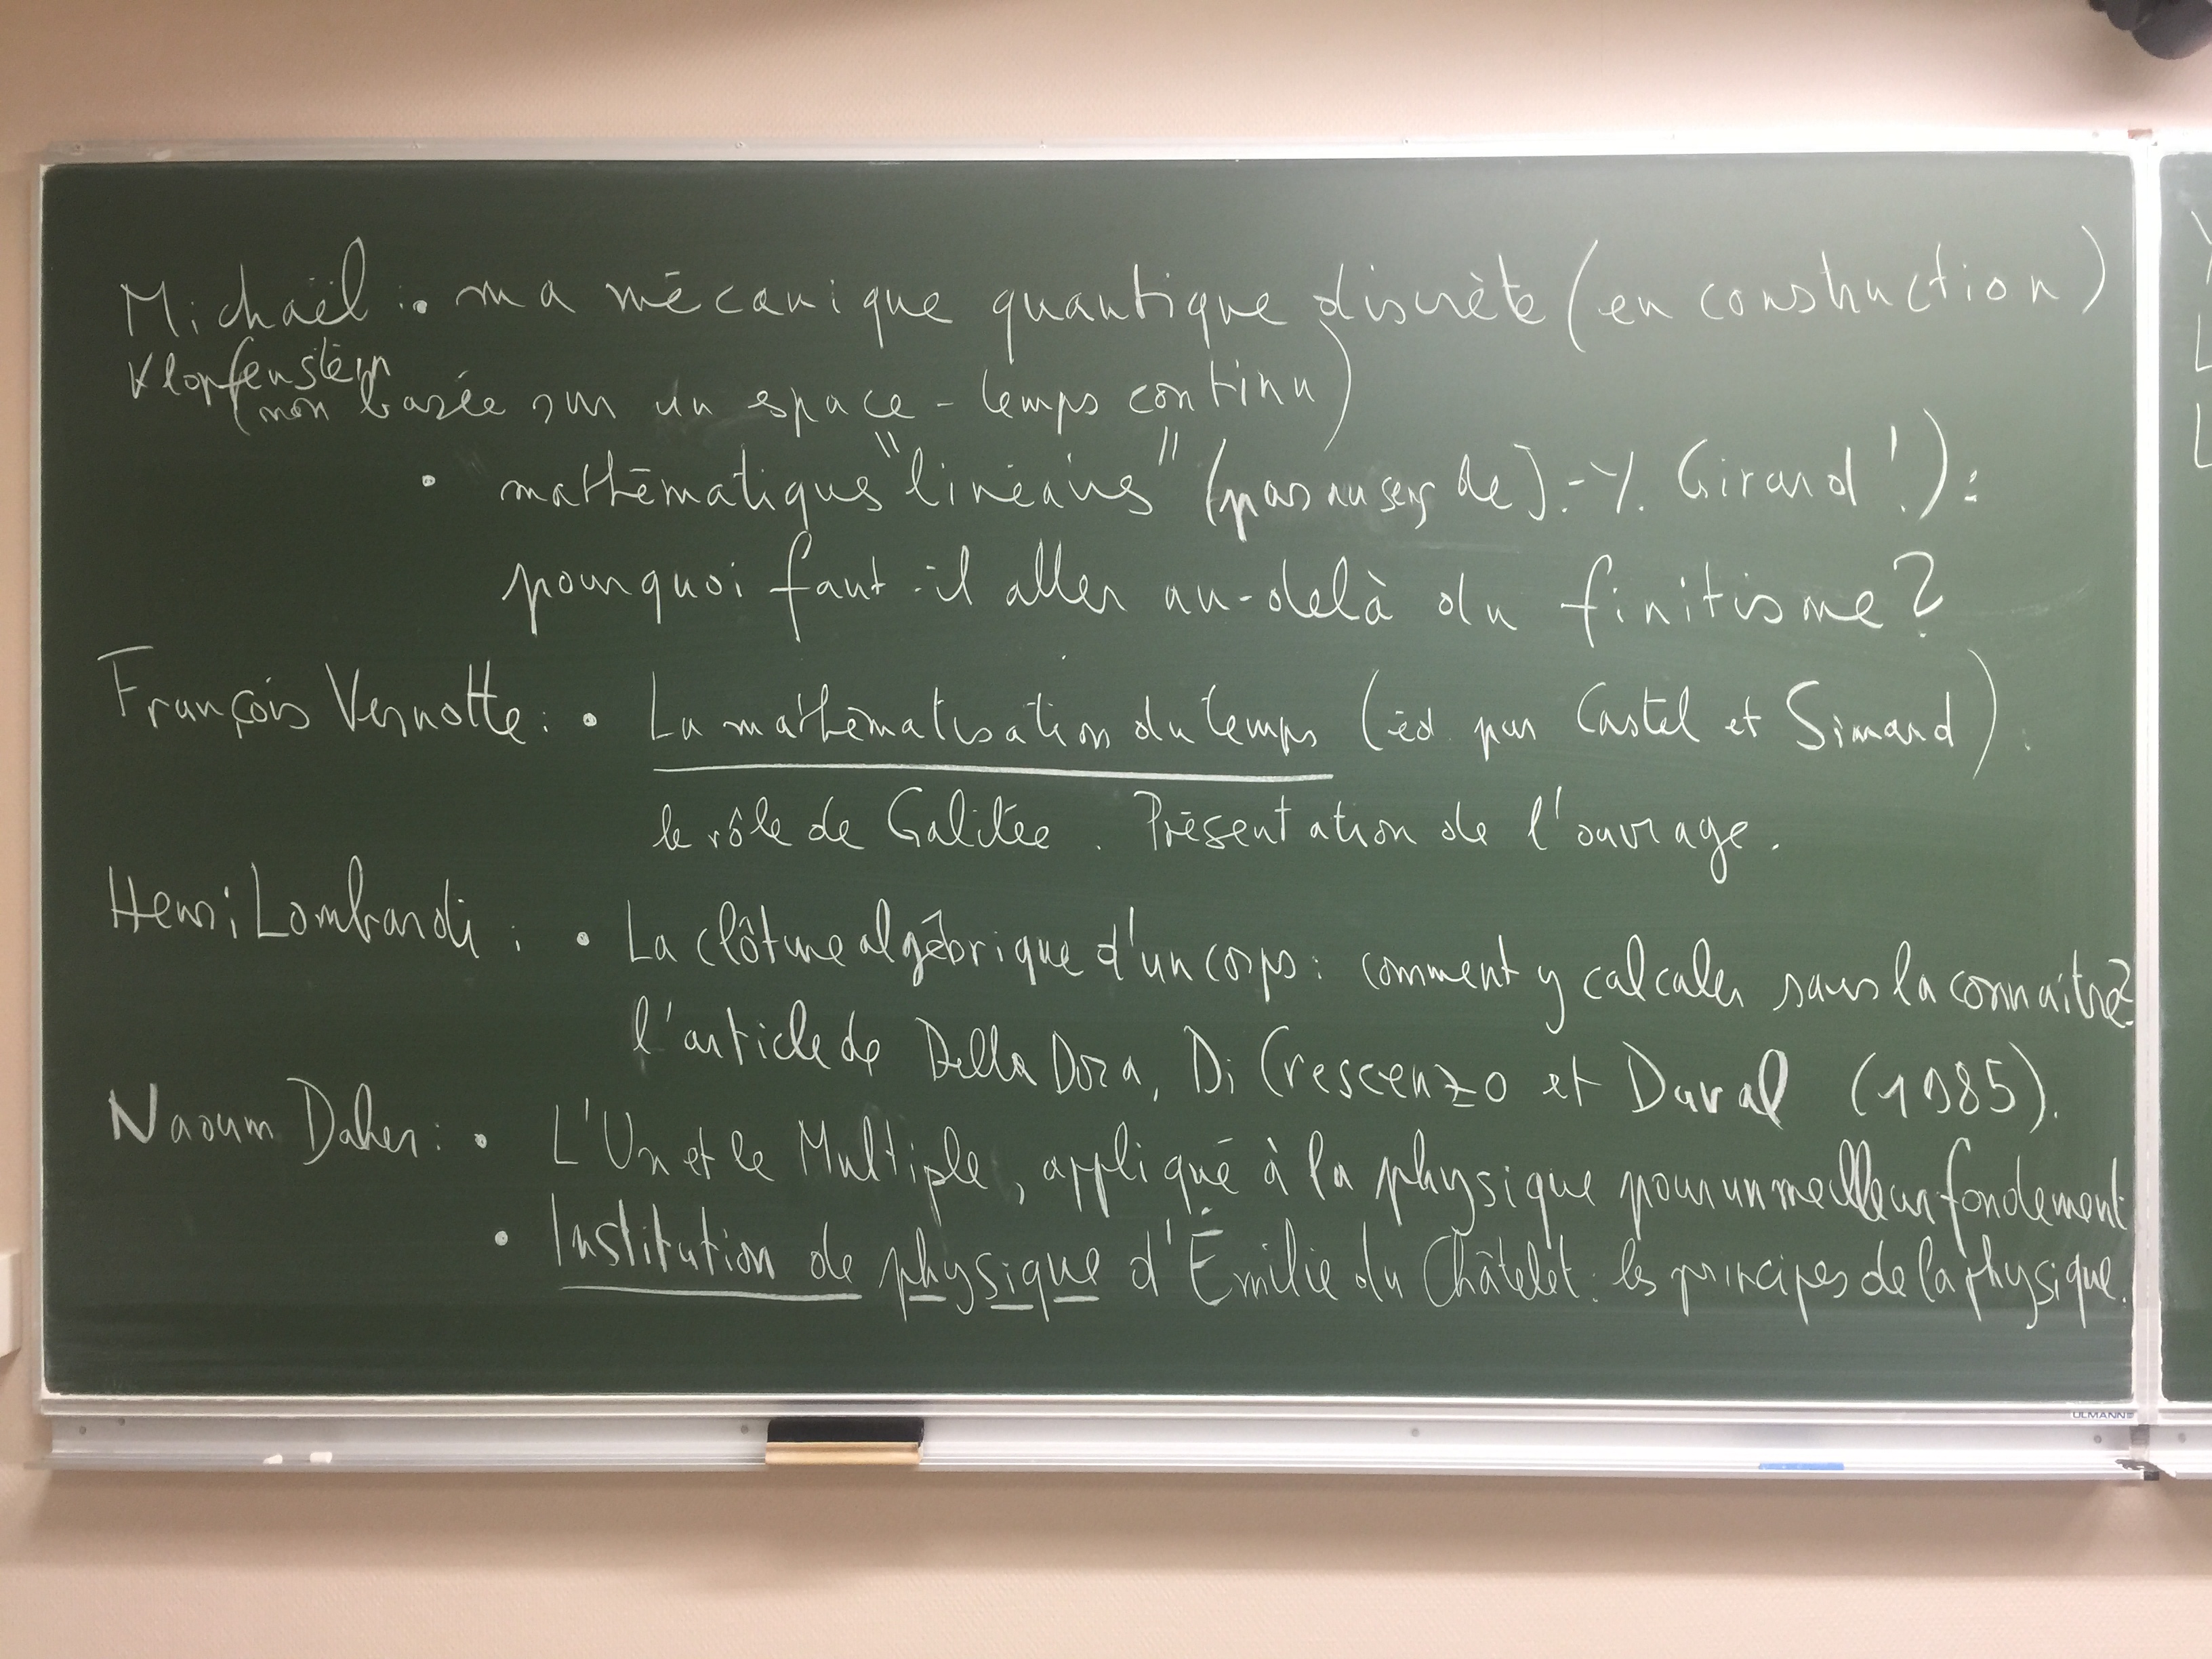 Michaël : • ma mécanique quantique discrète (en construction)
Klopfenstein
(non basée sur un espace-temps continu)
• mathématiques "linéaires" (pas au sens de J.-Y. Girard !) :
pourquoi faut-il aller au-delà du finitisme ?
François Vernotte : • La mathématisation du temps (éd. par Castel et Simard).
le rôle de Galilée. Présentation de l'ouvrage.
Henri Lombardi : • La clôture algébrique d'un corps : comment y calculer sans la connaître ?
l'article de Della Dora, Di Crescenzo et Duval (1985).
Naoum Daher : • L'Un et le Multiple, appliqué à la physique pour un meilleur fondement
• Institution de physique d'Émilie du Châtelet : les principes de la physique.
ULMANN